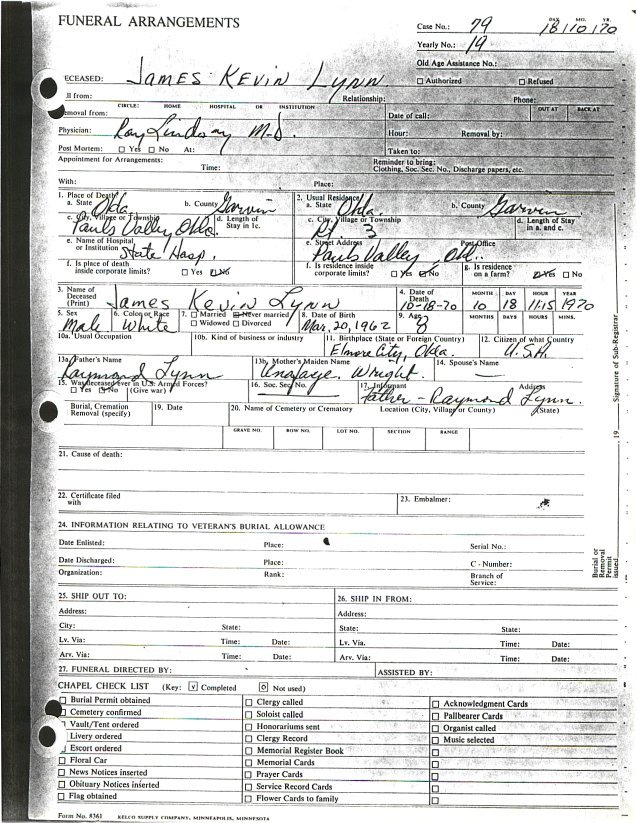 FUNERAL ARRANGEMENTS
Case No.: 79
DAY MO. YR.
18 | 10 | 70
Yearly No.: 19
Old Age Assistance No.:
☐ Authorized ☐ Refused
ECEASED: James Kevin Lynn
ll from: Relationship: Phone:
CIRCLE: HOME HOSPITAL OR INSTITUTION
OUT AT BACK AT
emoval from: Date of call:
Physician: Ray Lindsay M-D. Hour: Removal by:
Post Mortem: ☐ Yes ☐ No At: Taken to:
Appointment for Arrangements: Time:
Reminder to bring:
Clothing, Soc. Sec. No., Discharge papers, etc.
With: Place:
1. Place of Death
a. State Okla b. County Garvin
c. City, Village or Township Pauls Valley Okla. d. Length of Stay in 1c.
e. Name of Hospital or Institution State Hosp.
f. Is place of death inside corporate limits? ☐ Yes ☐ No
2. Usual Residence
a. State Okla b. County Garvin
c. City, Village or Township Rt 3 d. Length of Stay in a. and c.
e. Street Address Post Office
Pauls Valley, Okl.
f. Is residence inside corporate limits? ☐ Yes ☐ No g. Is residence on a farm? ☐ Yes ☐ No
3. Name of Deceased (Print) James Kevin Lynn
4. Date of Death 10-18-70
MONTH DAY HOUR YEAR
10 18 11:15 1970
5. Sex Male 6. Color or Race White 7. ☐ Married ☐ Never married ☐ Widowed ☐ Divorced
8. Date of Birth Mar, 20, 1962 9. Age 8
MONTHS DAYS HOURS MINS.
10a. Usual Occupation 10b. Kind of business or industry
11. Birthplace (State or Foreign Country) Elmore City, Okla.
12. Citizen of what Country U.S.A.
13a. Father's Name Raymond Lynn
13b. Mother's Maiden Name Wright
14. Spouse's Name —
15. Was deceased ever in U.S. Armed Forces? ☐ Yes ☐ No (Give war)
16. Soc. Sec. No.
17. Informant Address
Father - Raymond Lynn.
Burial, Cremation Removal (specify) 19. Date 20. Name of Cemetery or Crematory Location (City, Village or County) (State)
GRAVE NO. ROW NO. LOT NO. SECTION RANGE
21. Cause of death:
22. Certificate filed with 23. Embalmer:
24. INFORMATION RELATING TO VETERAN'S BURIAL ALLOWANCE
Date Enlisted: Place: Serial No.:
Date Discharged: Place: C - Number:
Organization: Rank: Branch of Service:
25. SHIP OUT TO: 26. SHIP IN FROM:
Address: Address:
City: State: State: State:
Lv. Via: Time: Date: Lv. Via. Time: Date:
Arv. Via: Time: Date: Arv. Via: Time: Date:
27. FUNERAL DIRECTED BY: ASSISTED BY:
CHAPEL CHECK LIST (Key: V Completed O Not used)
☐ Burial Permit obtained ☐ Clergy called ☐ Acknowledgment Cards
☐ Cemetery confirmed ☐ Soloist called ☐ Pallbearer Cards
Vault/Tent ordered ☐ Honorariums sent ☐ Organist called
Livery ordered ☐ Clergy Record ☐ Music selected
Escort ordered ☐ Memorial Register Book ☐
☐ Floral Car ☐ Memorial Cards ☐
☐ News Notices inserted ☐ Prayer Cards ☐
☐ Obituary Notices inserted ☐ Service Record Cards ☐
☐ Flag obtained ☐ Flower Cards to family ☐
Form No. 8361 KELCO SUPPLY COMPANY, MINNEAPOLIS, MINNESOTA
Burial or Removal Permit issued , 19 Signature of Sub-Registrar